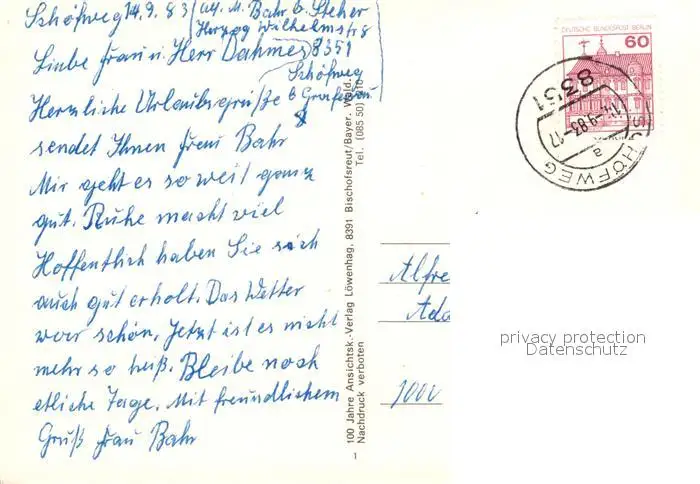 Schöfweg 14.9.83 (Adr. M. Bahr b. Steher
Herzog Wilhelmstr 8
Liebe Frau u. Herr Dahmes 8351
Schöfweg
Herzliche Urlaubsgrüße b Grafenau
sendet Ihnen Frau Bahr
Mir geht es so weit ganz
gut. Ruhe macht viel
Hoffentlich haben Sie sich
auch gut erholt. Das Wetter
war schön. Jetzt ist es nicht
mehr so heiß. Bleibe noch
etliche Tage. Mit freundlichem
Gruß Frau Bahr
100 Jahre Ansichtsk.-Verlag Löwenhag, 8391 Bischofsreut/Bayer. Wald
Nachdruck verboten Tel. (085 50)
1
DEUTSCHE BUNDESPOST BERLIN
60
8351
14.-9.83-17
a
SCHÖFWEG
Alfre
Ada
1000
privacy protection
Datenschutz